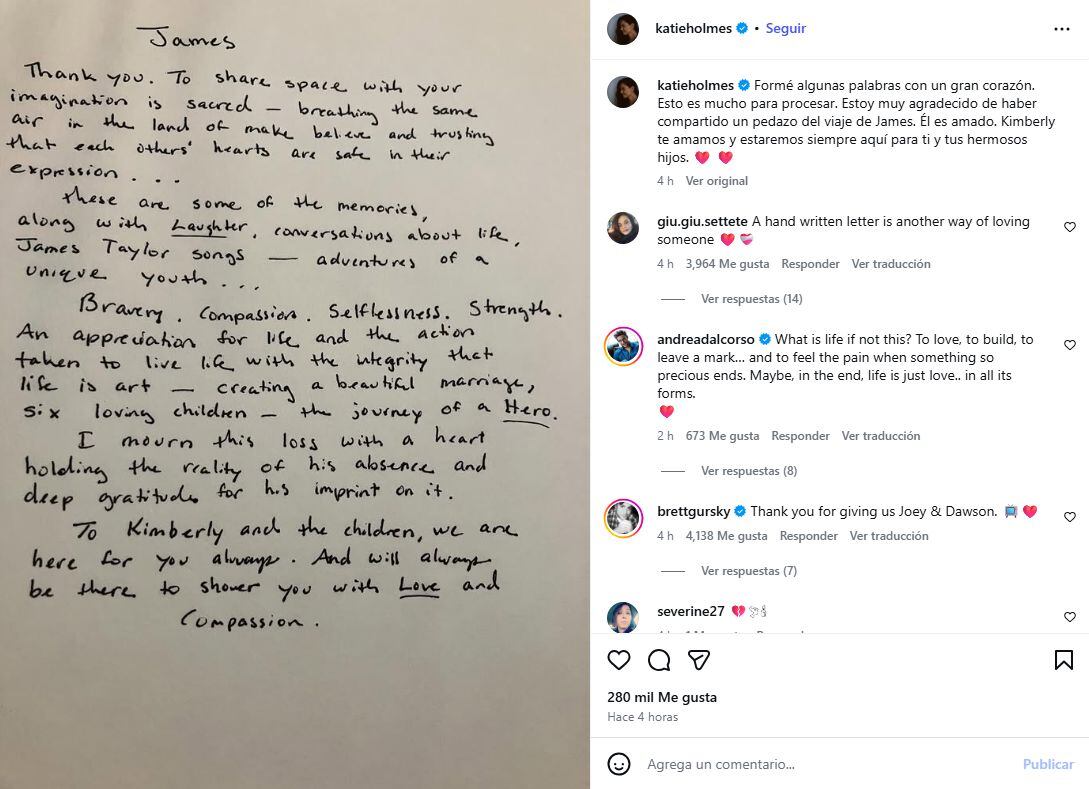 James
Thank you. To share space with your
imagination is sacred — breathing the same
air in the land of make believe and trusting
that each others' hearts are safe in their
expression . . .
these are some of the memories,
along with Laughter, conversations about life,
James Taylor songs — adventures of a
unique youth . . .
Bravery. Compassion. Selflessness. Strength.
An appreciation for life and the action
taken to live life with the integrity that
life is art — creating a beautiful marriage,
six loving children — the journey of a Hero.
I mourn this loss with a heart
holding the reality of his absence and
deep gratitude for his imprint on it.
To Kimberly and the children, we are
here for you always. And will always
be there to shower you with Love and
Compassion.
katieholmes • Seguir
katieholmes Formé algunas palabras con un gran corazón.
Esto es mucho para procesar. Estoy muy agradecido de haber
compartido un pedazo del viaje de James. Él es amado. Kimberly
te amamos y estaremos siempre aquí para ti y tus hermosos
hijos. ❤️ ❤️
4 h Ver original
giu.giu.settete A hand written letter is another way of loving
someone ❤️ 💝
4 h 3,964 Me gusta Responder Ver traducción
Ver respuestas (14)
andreadalcorso What is life if not this? To love, to build, to
leave a mark... and to feel the pain when something so
precious ends. Maybe, in the end, life is just love.. in all its
forms.
❤️
2 h 673 Me gusta Responder Ver traducción
Ver respuestas (8)
brettgursky Thank you for giving us Joey & Dawson. 📺 ❤️
4 h 4,138 Me gusta Responder Ver traducción
Ver respuestas (7)
severine27 💔 🕊
280 mil Me gusta
Hace 4 horas
Agrega un comentario...
Publicar